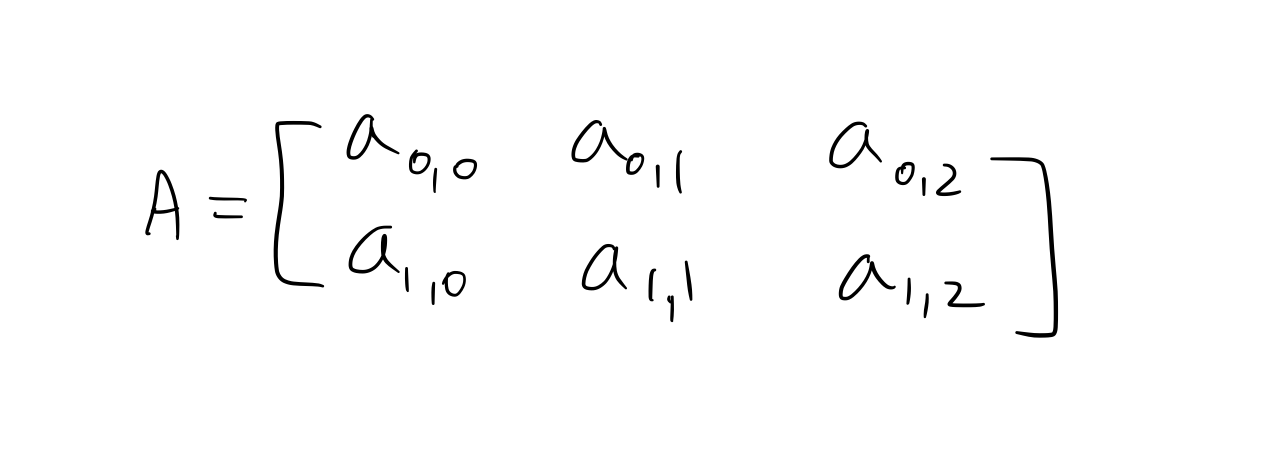 A = [ a0,0 a0,1 a0,2
a1,0 a1,1 a1,2 ]